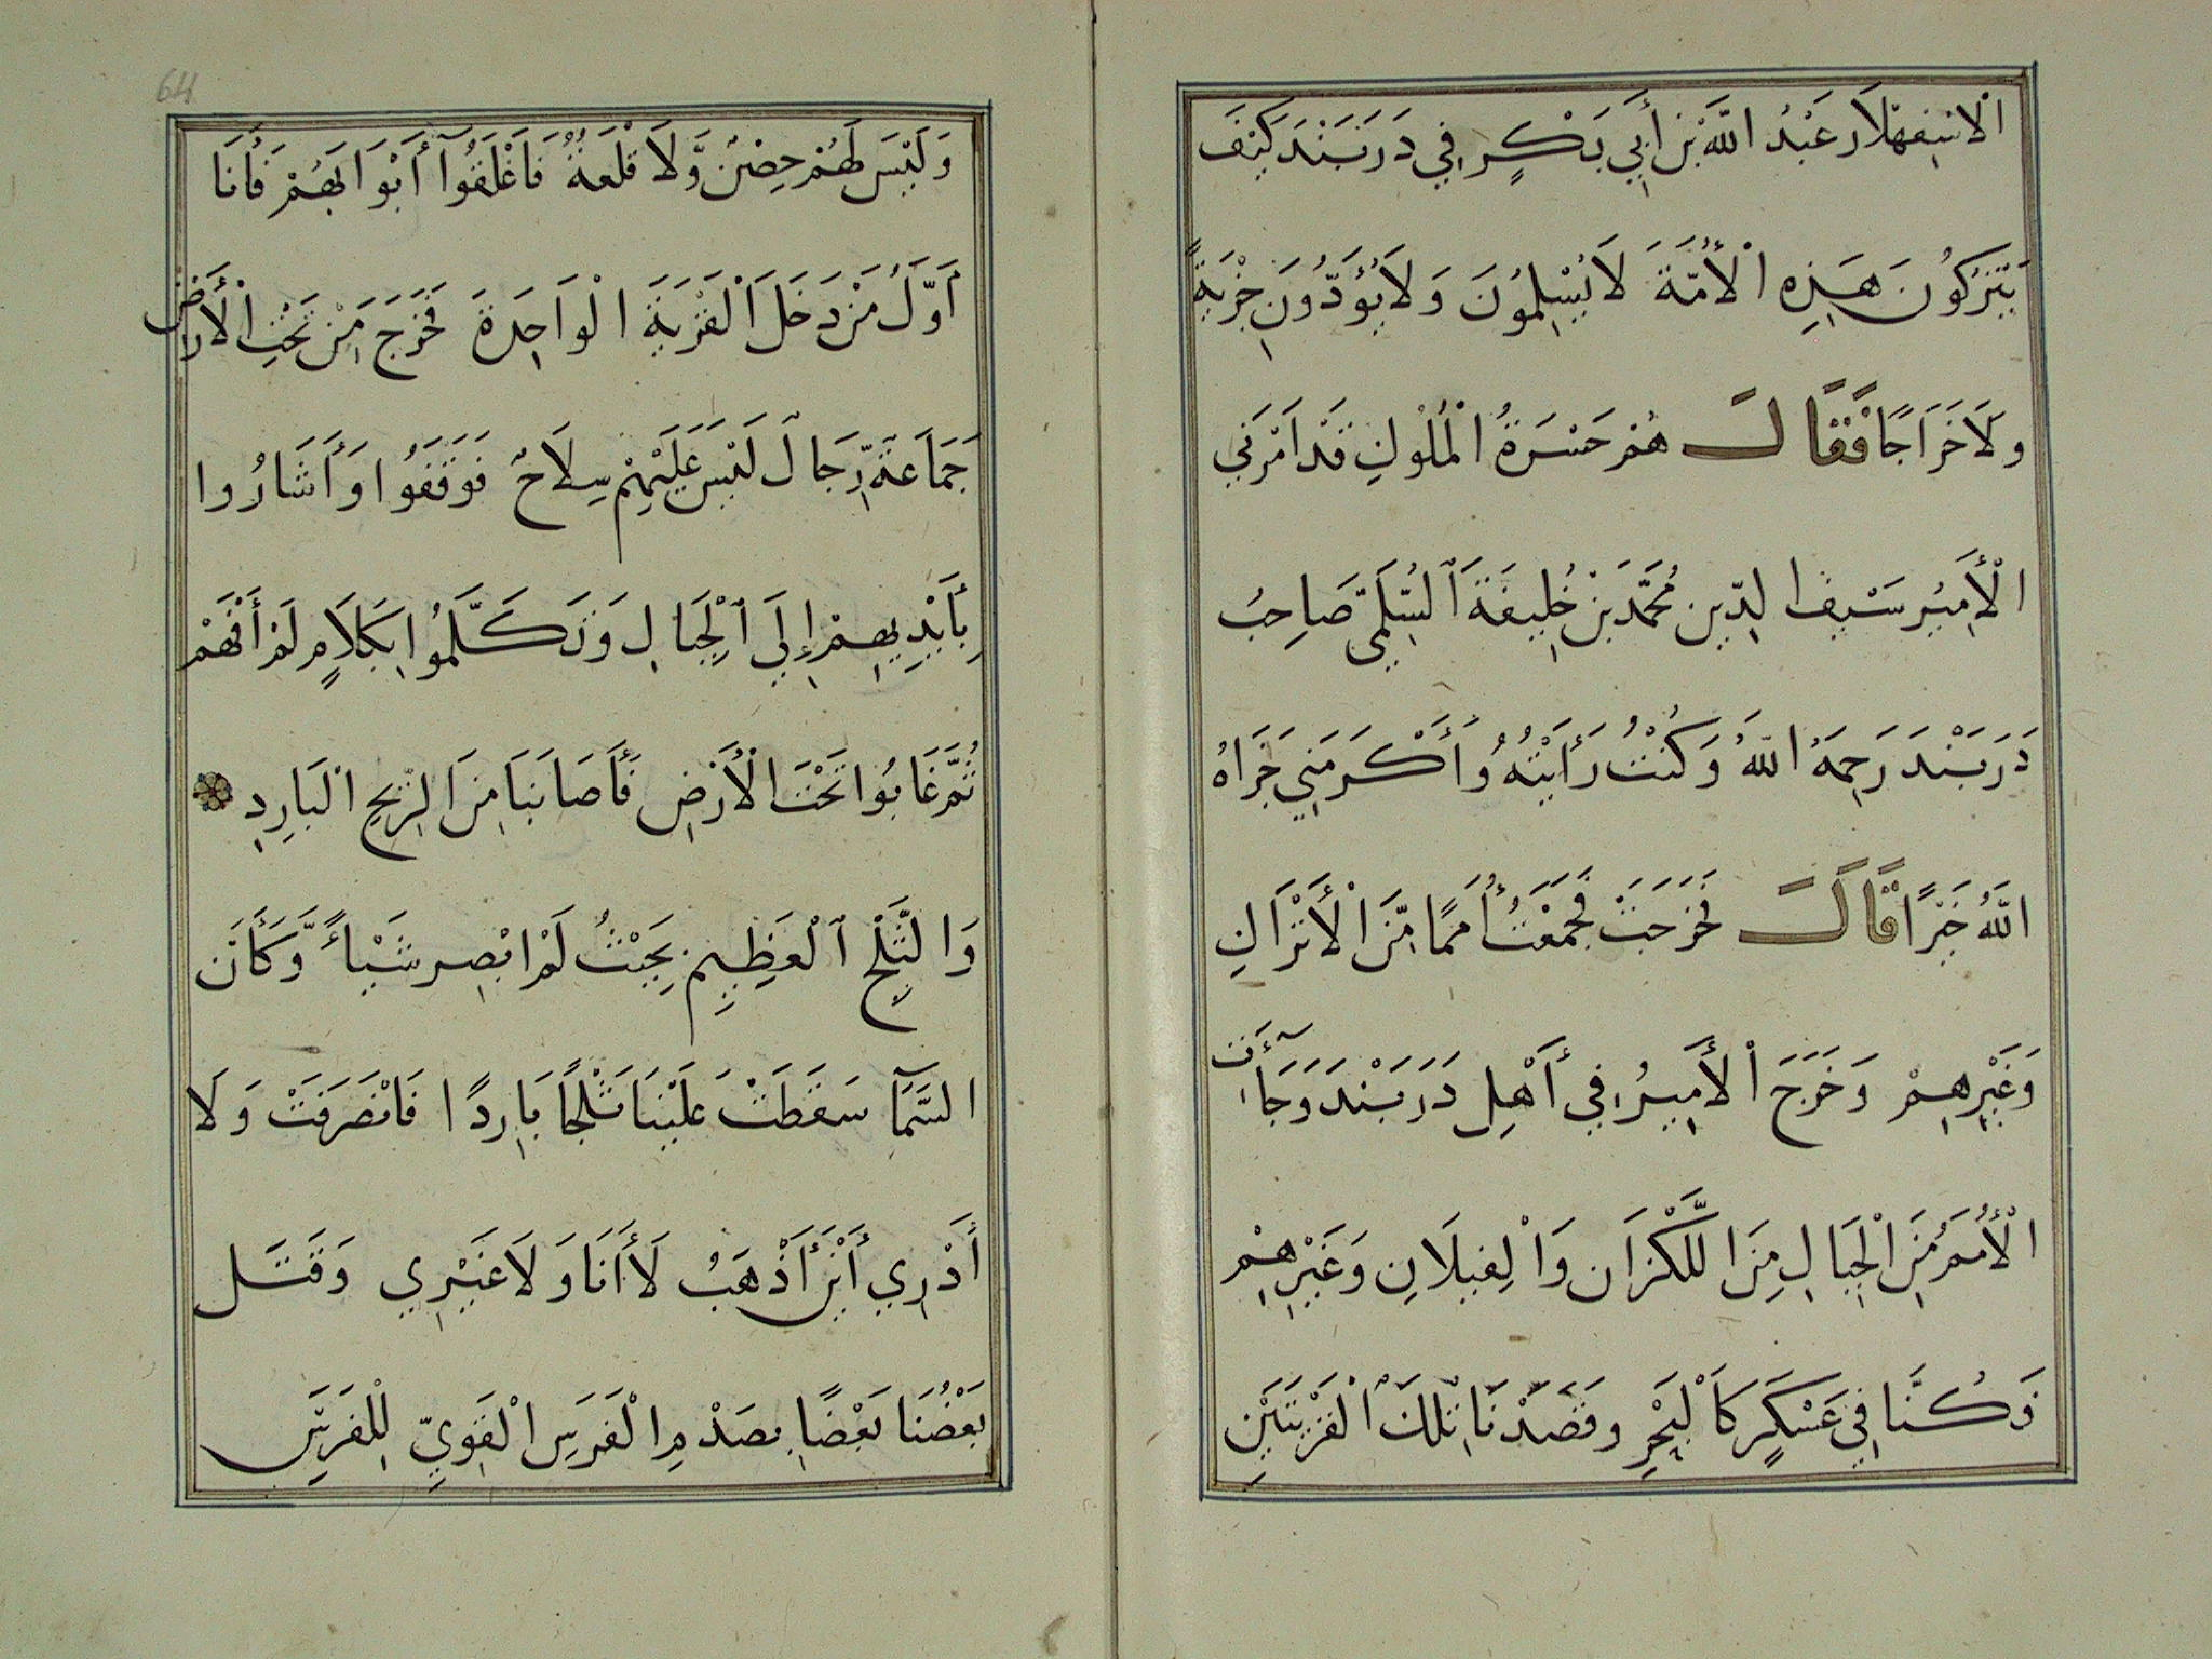 الْاسْفِهْلَار عَبْدُ اللَّه بْن أَبِي بَكْرٍ فِي دَرَبَنْدَ كَيْفَ
يَتْرُكُونَ هَذِهِ الْأُمَّةَ لَا يُسْلِمُونَ وَلَا يُؤَدُّونَ جِزْيَةً
وَلَا خَرَاجًا فَقَالَ هُمْ حَسْرَةُ الْمُلُوكِ قَدْ اَمَرَنِي
الْأَمِيرُ سَيْفُ الدِّينِ مُحَمَّدُ بْنُ خَلِيفَةَ السُّلَمِيّ صَاحِبُ
دَرَبَنْدَ رَحِمَهُ اللَّهُ وَكُنْتُ رَأَيْتُهُ وَأَكْرَمَنِي جَزَاهُ
اللَّهُ خَيْرًا قَالَ فَخَرَجْتُ فَجَمَعْتُ أُمَمًا مِّنَ الْأَتْرَاكِ
وَغَيْرِهِمْ وَخَرَجَ الْأَمِيرُ فِي أَهْلِ دَرَبَنْدَ وَجَآءَت
الْأُمَمُ مِنَ الْجِبَالِ مِنَ اللَّكْزَانِ وَالْفِيلَانِ وَغَيْرِهِمْ
وَكُنَّا فِي عَسْكَرٍ كَالْبَحْرِ وقَصَدْنَا تِلْكَ الْقَرْيَتَيْنِ
64
وَلَيْسَ لَهُمْ حِصْنٌ وَّلَا قَلْعَةٌ فَاَغْلَقُوآ أَبْوَابَهُمْ فَأَنَا
اَوَّلُ مَنْ دَخَلَ الْقَرْيَةَ الْوَاحِدَةَ فَخَرَجَ مِنْ تَحْتِ الْأَرْضِ
جَمَاعَةُ رِّجَالٍ لَيْسَ عَلَيْهِمْ سِلَاحٌ فَوَقَفُوا وَأَشَارُوا
بِأَيْدِيهِمْ إِلَى الْجِبَالِ وَتَكَلَّمُوا بِكَلَامٍ لَمْ أَفْهَمْ
ثُمَّ غَابُوا تَحْتَ الْأَرْضِ فَأَصَابَنَا مِنَ الرِّيحِ الْبَارِدِ
وَالثَّلْجِ الْعَظِيمِ بِحَيْثُ لَمْ ابْصِر شَيْأً وَّكَأَنَّ
السَّمَآ سَقَطَتْ عَلَيْنَا ثَلْجًا بَارِدًا فَانْصَرَفْتُ وَلَا
أَدْرِي أَيْنَ أَذْهَبُ لَا أَنَا وَلَا غَيْرِي وَقَتَل
بَعْضُنَا بَعْضًا بِصَدْمِ الْفَرَسِ الْقَوِيِّ لِلْفَرَسِ